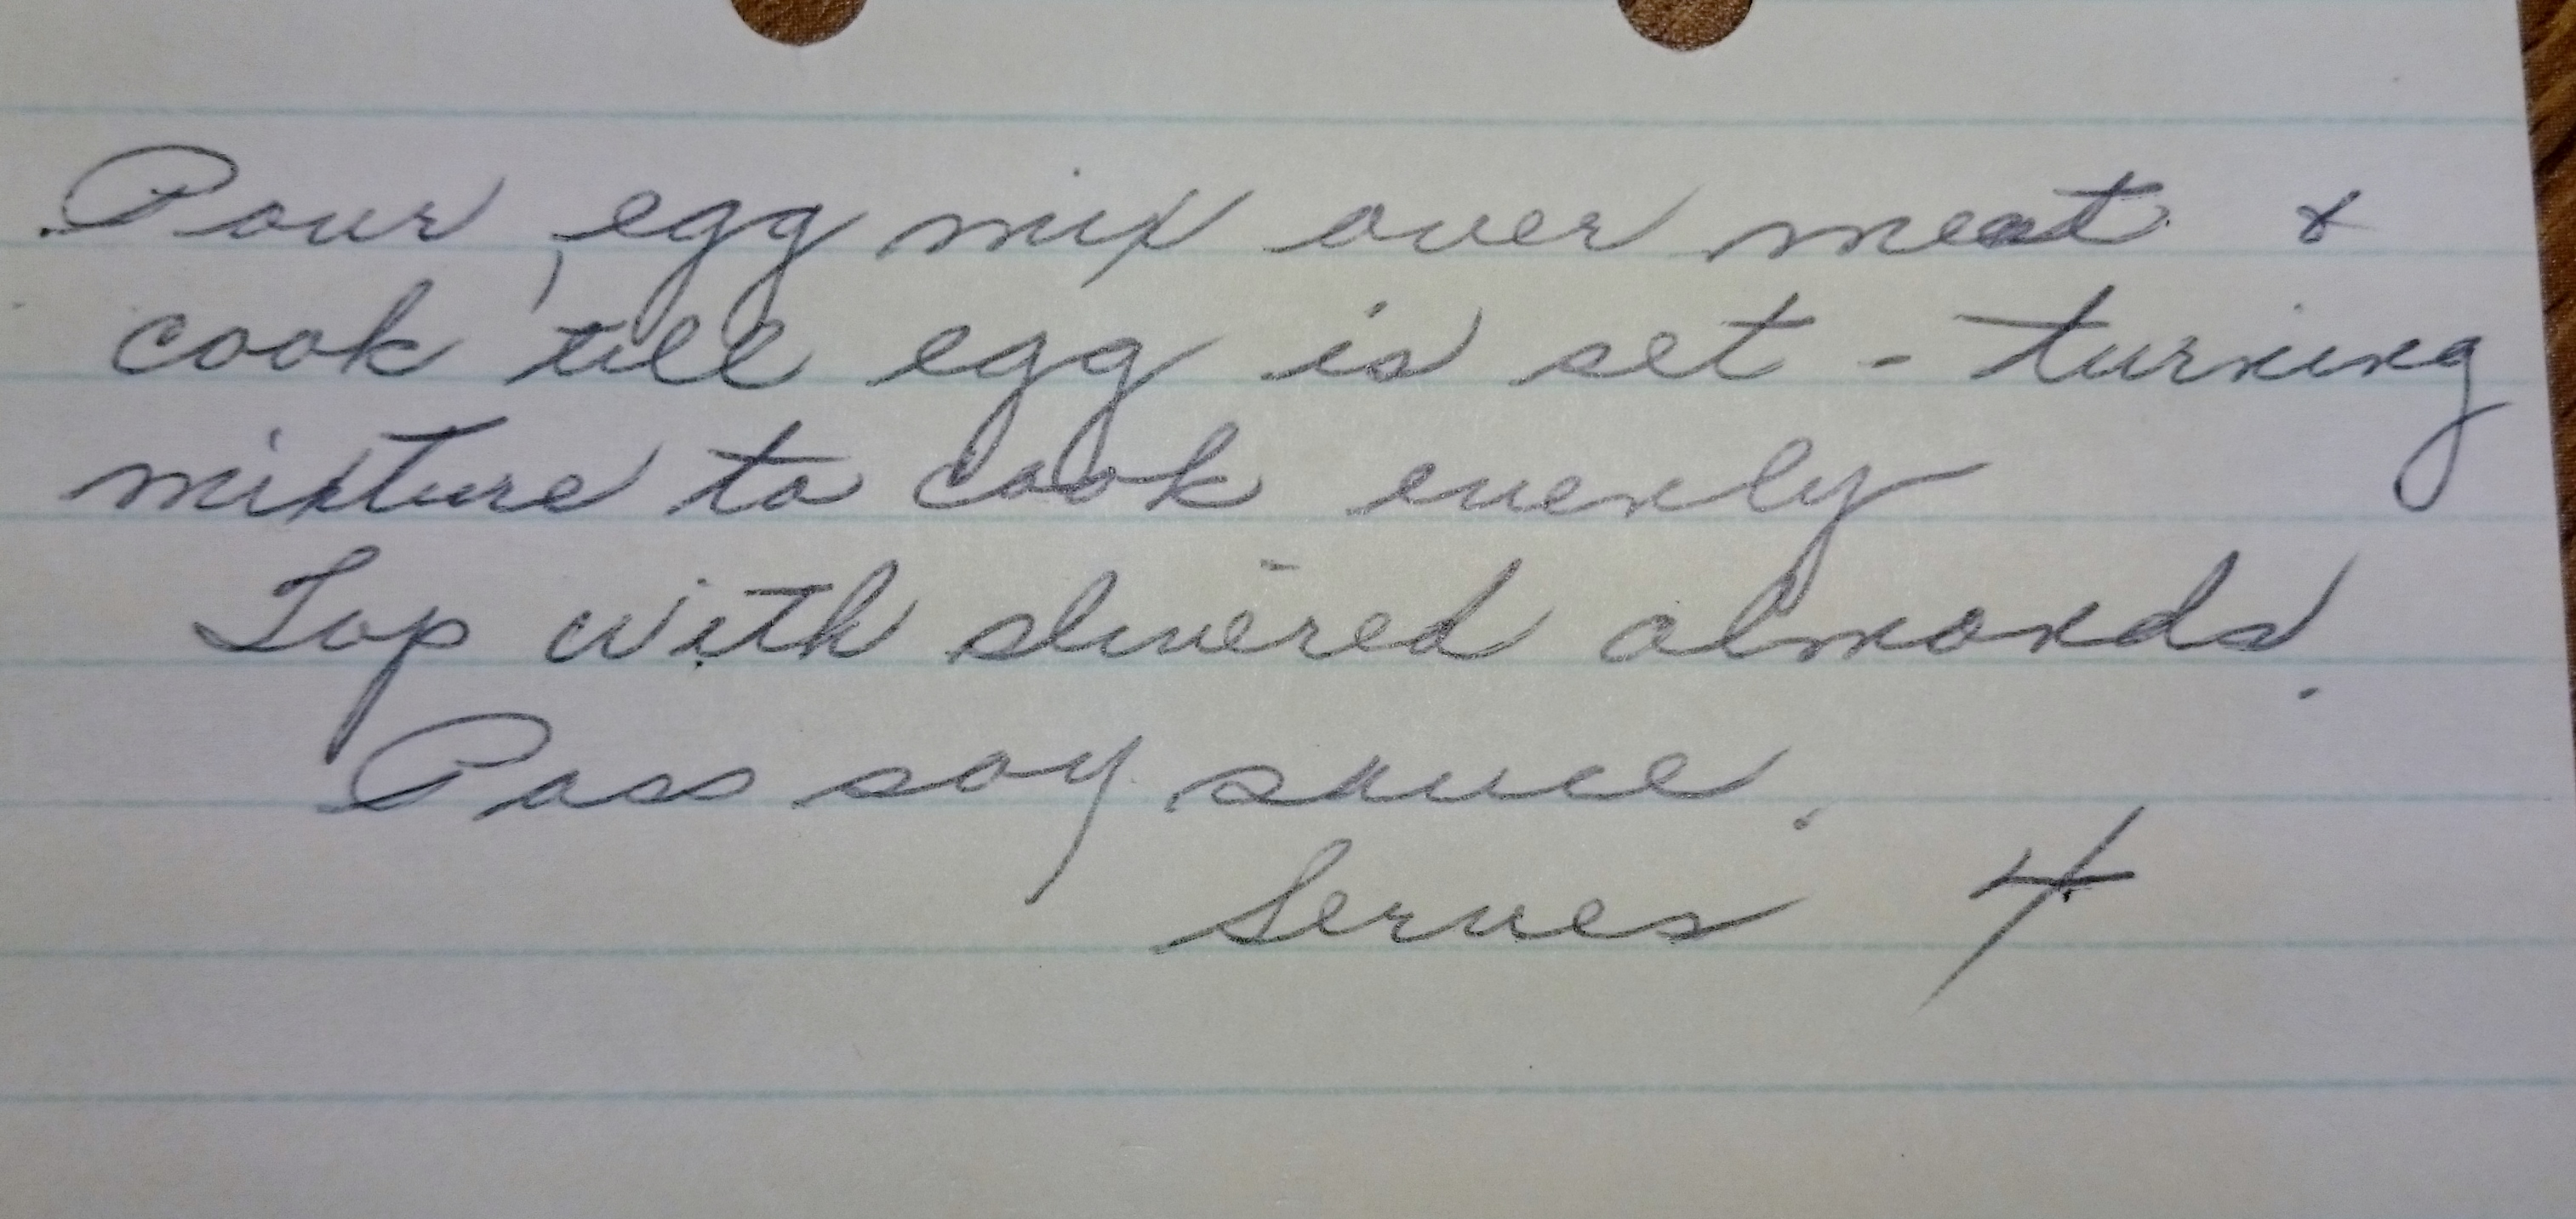 Pour egg mix over meat &
cook 'till egg is set - turning
mixture to cook evenly
Top with slivered almonds.
Pass soy sauce.
Serves 4